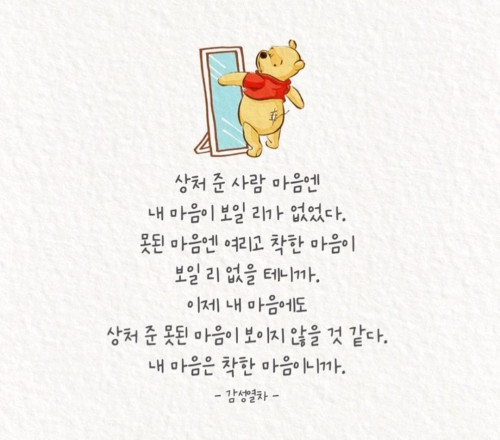 상처 준 사람 마음엔
내 마음이 보일 리가 없었다.
못된 마음엔 여리고 착한 마음이
보일 리 없을 테니까.
이제 내 마음에도
상처 준 못된 마음이 보이지 않을 것 같다.
내 마음은 착한 마음이니까.
- 감성열차 -